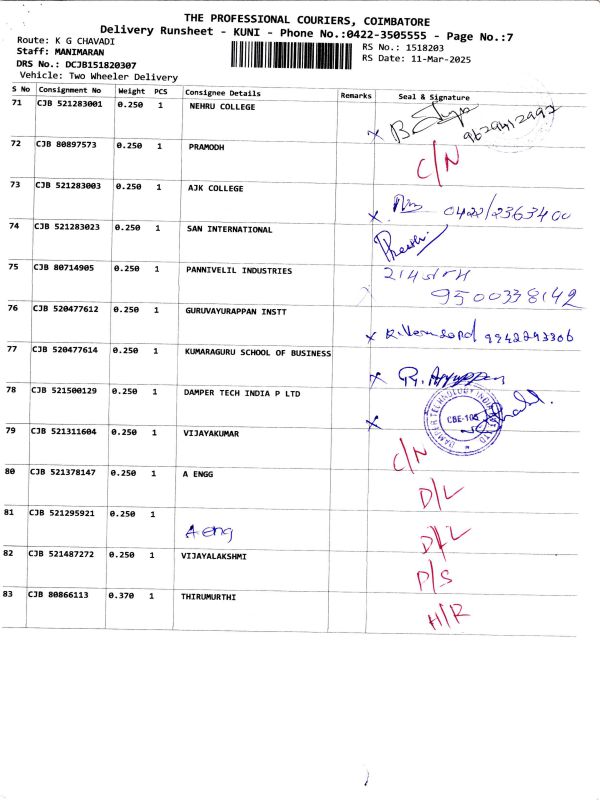 THE PROFESSIONAL COURIERS, COIMBATORE
Delivery Runsheet - KUNI - Phone No.:0422-3505555 - Page No.:7
Route: K G CHAVADI
Staff: MANIMARAN
DRS No.: DCJB151820307
Vehicle: Two Wheeler Delivery
RS No.: 1518203
RS Date: 11-Mar-2025
S No Consignment No Weight PCS Consignee Details Remarks Seal & Signature
71 CJB 521283001 0.250 1 NEHRU COLLEGE
72 CJB 80897573 0.250 1 PRAMODH C/N
73 CJB 521283003 0.250 1 AJK COLLEGE 0422/2363400
74 CJB 521283023 0.250 1 SAN INTERNATIONAL
75 CJB 80714905 0.250 1 PANNIVELIL INDUSTRIES
9500338142
76 CJB 520477612 0.250 1 GURUVAYURAPPAN INSTT 9942293306
77 CJB 520477614 0.250 1 KUMARAGURU SCHOOL OF BUSINESS
78 CJB 521500129 0.250 1 DAMPER TECH INDIA P LTD
79 CJB 521311604 0.250 1 VIJAYAKUMAR C/N
80 CJB 521378147 0.250 1 A ENGG D/L
81 CJB 521295921 0.250 1 A eng D/L
82 CJB 521487272 0.250 1 VIJAYALAKSHMI P/S
83 CJB 80866113 0.370 1 THIRUMURTHI H/R